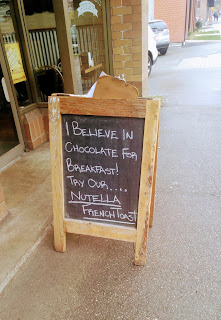 I BELIEVE IN
CHOCOLATE FOR
BREAKFAST!
TRY OUR....
NUTELLA
FRENCH TOAST